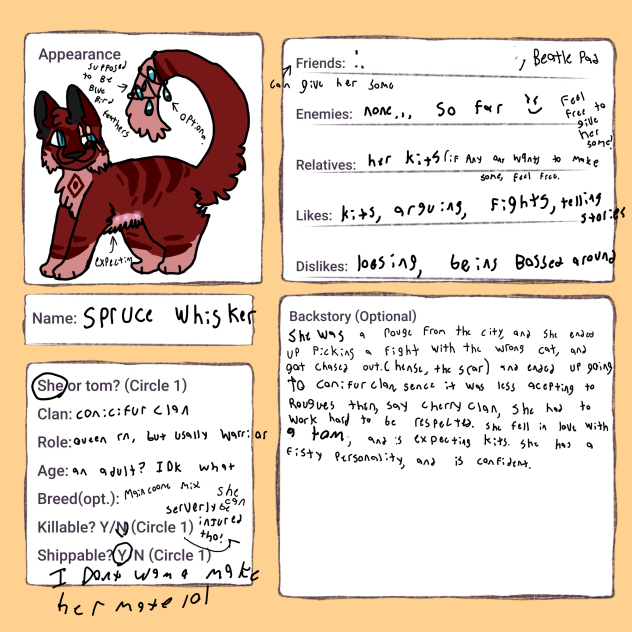 Appearance
supposed
to be
Blue
Bird
feathers
optional
expecting
Name: Spruce Whisker
She or tom? (Circle 1)
Clan: conicifur clan
Role: queen rn, but usally warrior
Age: an adult? IDK what
Breed(opt.): Maincoone mix
Killable? Y/N (Circle 1)
she
can
serverly be
injured
tho!
Shippable? Y/N (Circle 1)
I Dont wana make
her mate lol
Friends: , Beatle Pad
can give her some
Enemies: none... so far
Feel
free to
give
her
some!
Relatives: her kits (if Any one wants to make
some, feel free.
Likes: kits, arguing, fights, telling
stories
Dislikes: loosing, being Bossed around
Backstory (Optional)
She was a rouge from the city, and she ended
up picking a fight with the wrong cat, and
got chased out. (hense, the scar) and ended up going
to conifur clan, sence it was less acepting to
Rougues then, say cherry clan, she had to
work hard to be respected. she fell in love with
a tom, and is expecting kits. She has a
fisty personality, and is confident.